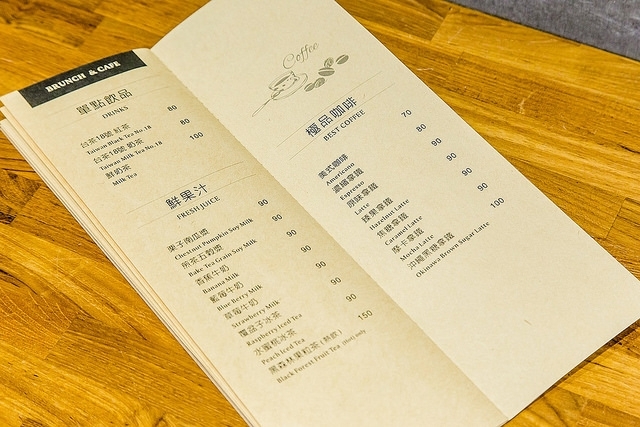 BRUNCH & CAFE
單點飲品
DRINKS
台茶18號 紅茶 80
Taiwan Black Tea No.18
台茶18號 奶茶 80
Taiwan Milk Tea No.18
鮮奶茶 100
Milk Tea
鮮果汁
FRESH JUICE
栗子南瓜漿 90
Chestnut Pumpkin Soy Milk
焙茶五穀漿 90
Bake Tea Grain Soy Milk
香蕉牛奶 90
Banana Milk
藍莓牛奶 90
Blue Berry Milk
草莓牛奶 90
Strawberry Milk
覆盆子冰茶 90
Raspberry Iced Tea
水蜜桃冰茶 90
Peach Iced Tea
黑森林果粒茶(熱飲) 150
Black Forest Fruit Tea (Hot) only
Coffee
極品咖啡
BEST COFFEE
美式咖啡 70
Americano
濃縮拿鐵 80
Espresso
原味拿鐵 90
Latte
榛果拿鐵 90
Hazelnut Latte
焦糖拿鐵 90
Caramel Latte
摩卡拿鐵 90
Mocha Latte
沖繩黑糖拿鐵 100
Okinawa Brown Sugar Latte